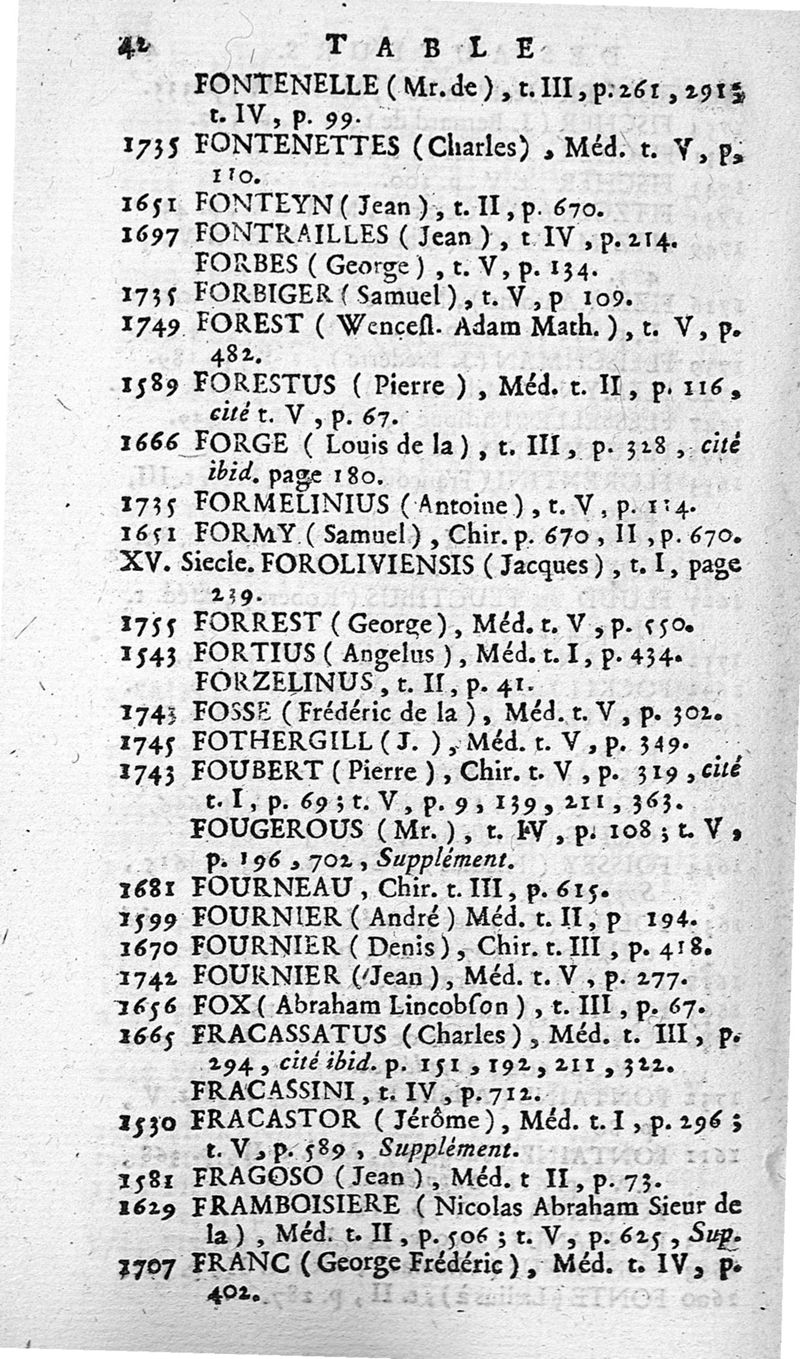 42 TABLE
FONTENELLE (Mr. de), t. III, p. 261, 291;
t. IV, p. 99.
1735 FONTENETTES (Charles), Méd. t. V, p.
110.
1651 FONTEYN (Jean), t. II, p. 670.
1697 FONTRAILLES (Jean), t IV, p. 214.
FORBES (George), t. V, p. 134.
1735 FORBIGER (Samuel), t. V, p 109.
1749 FOREST (Wenceſl. Adam Math.), t. V, p.
482.
1589 FORESTUS (Pierre), Méd. t. II, p. 116,
cité t. V, p. 67.
1666 FORGE (Louis de la), t. III, p. 328, cité
ibid. page 180.
1735 FORMELINIUS (Antoine), t. V, p. 114.
1651 FORMY (Samuel), Chir. p. 670, II, p. 670.
XV. Siecle. FOROLIVIENSIS (Jacques), t. I, page
239.
1755 FORREST (George), Méd. t. V, p. 550.
1543 FORTIUS (Angelus), Méd. t. I, p. 434.
FORZELINUS, t. II, p. 41.
1743 FOSSE (Frédéric de la), Méd. t. V, p. 302.
1745 FOTHERGILL (J.), Méd. t. V, p. 349.
1743 FOUBERT (Pierre), Chir. t. V, p. 319, cité
t. I, p. 69; t. V, p. 9, 139, 211, 363.
FOUGEROUS (Mr.), t. IV, p. 108; t. V,
p. 196, 702, Supplément.
1681 FOURNEAU, Chir. t. III, p. 615.
1599 FOURNIER (André) Méd. t. II, p 194.
1670 FOURNIER (Denis), Chir. t. III, p. 418.
1742 FOURNIER (Jean), Méd. t. V, p. 277.
1656 FOX (Abraham Lincobſon), t. III, p. 67.
1665 FRACASSATUS (Charles), Méd. t. III, p.
294, cité ibid. p. 151, 192, 211, 322.
FRACASSINI, t. IV, p. 712.
1530 FRACASTOR (Jérôme), Méd. t. I, p. 296;
t. V, p. 589, Supplément.
1581 FRAGOSO (Jean), Méd. t II, p. 73.
1629 FRAMBOISIERE (Nicolas Abraham Sieur de
la), Méd. t. II, p. 506; t. V, p. 625, Sup.
1707 FRANC (George Frédéric), Méd. t. IV, p.
402.